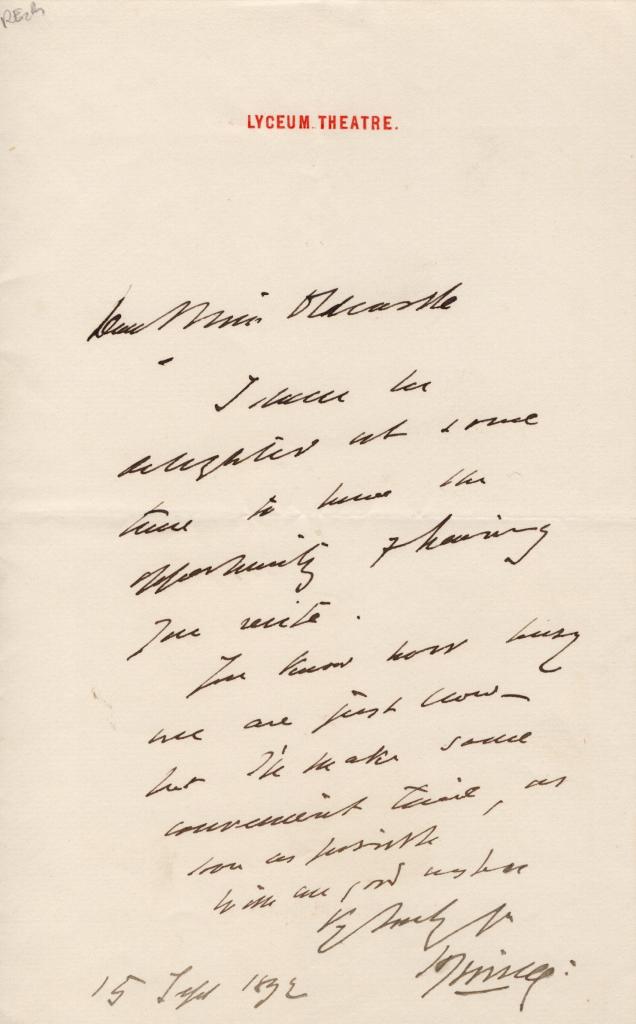 LYCEUM THEATRE.
Dear Miss Oldcastle
I shall be
delighted at some
time to have the
opportunity of hearing
you recite.
You know how busy
we are just now _
but I'll make some
convenient time, as
soon as possible
With all good wishes
15 Sept 1892